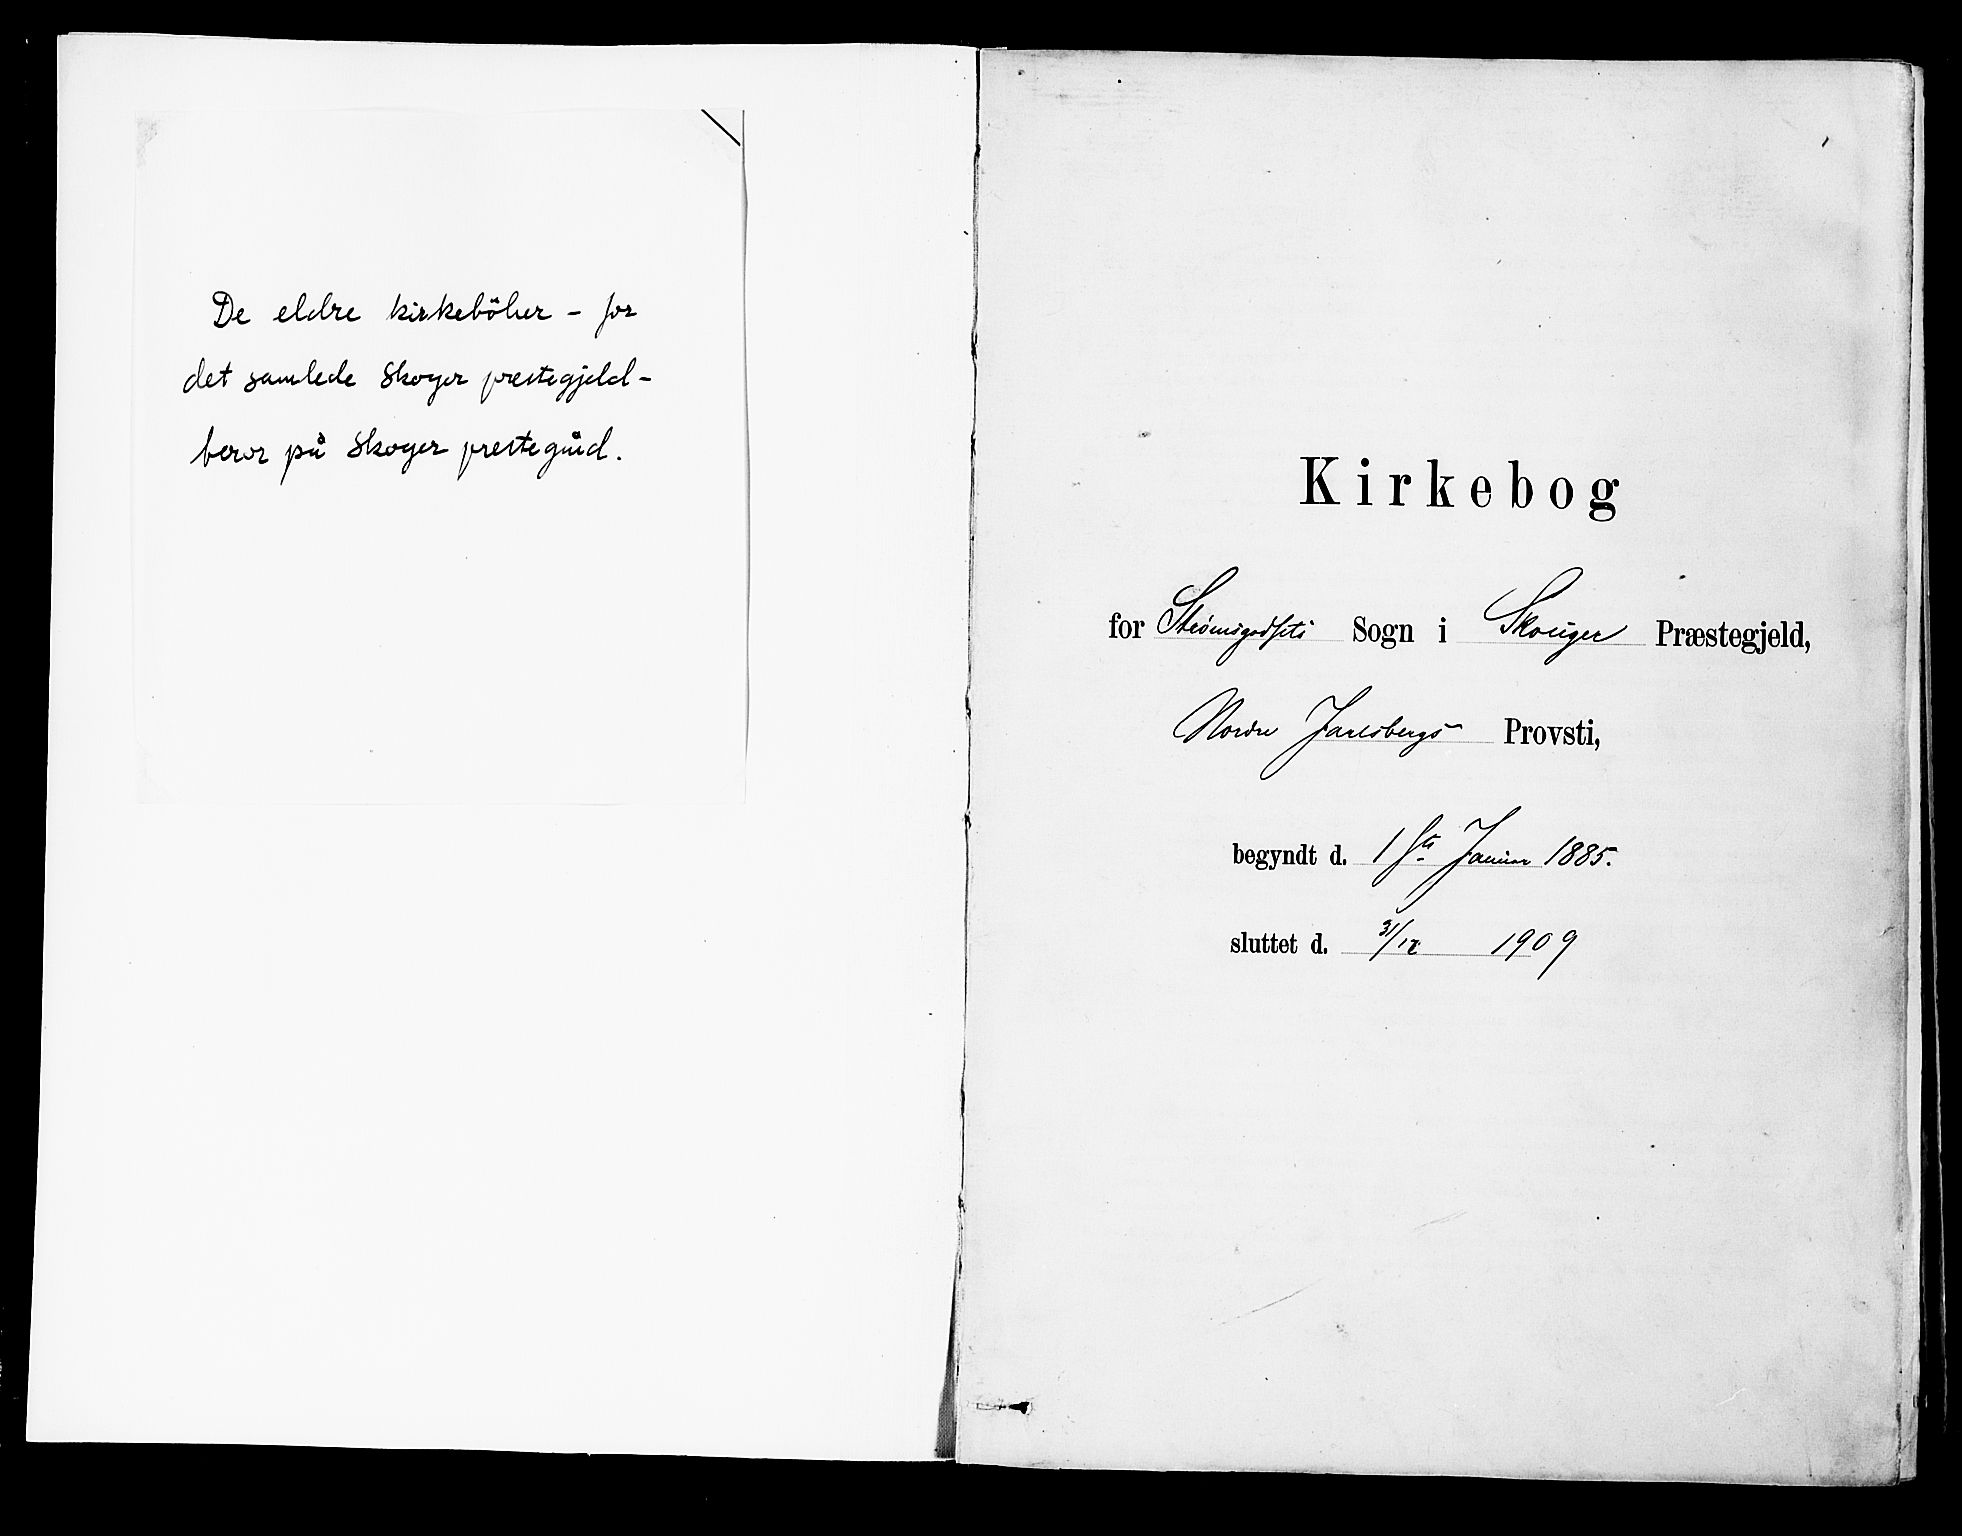 De eldre kirkebøker - for
det samlede Skoger prestegjeld -
beror på Skoger prestegård.
Kirkebog
for Strømsgodsets Sogn i Skouger Præstegjeld,
Nordre Jarlsbergs Provsti,
begyndt d. 1ste Januar 1885.
sluttet d. 31/12 1909